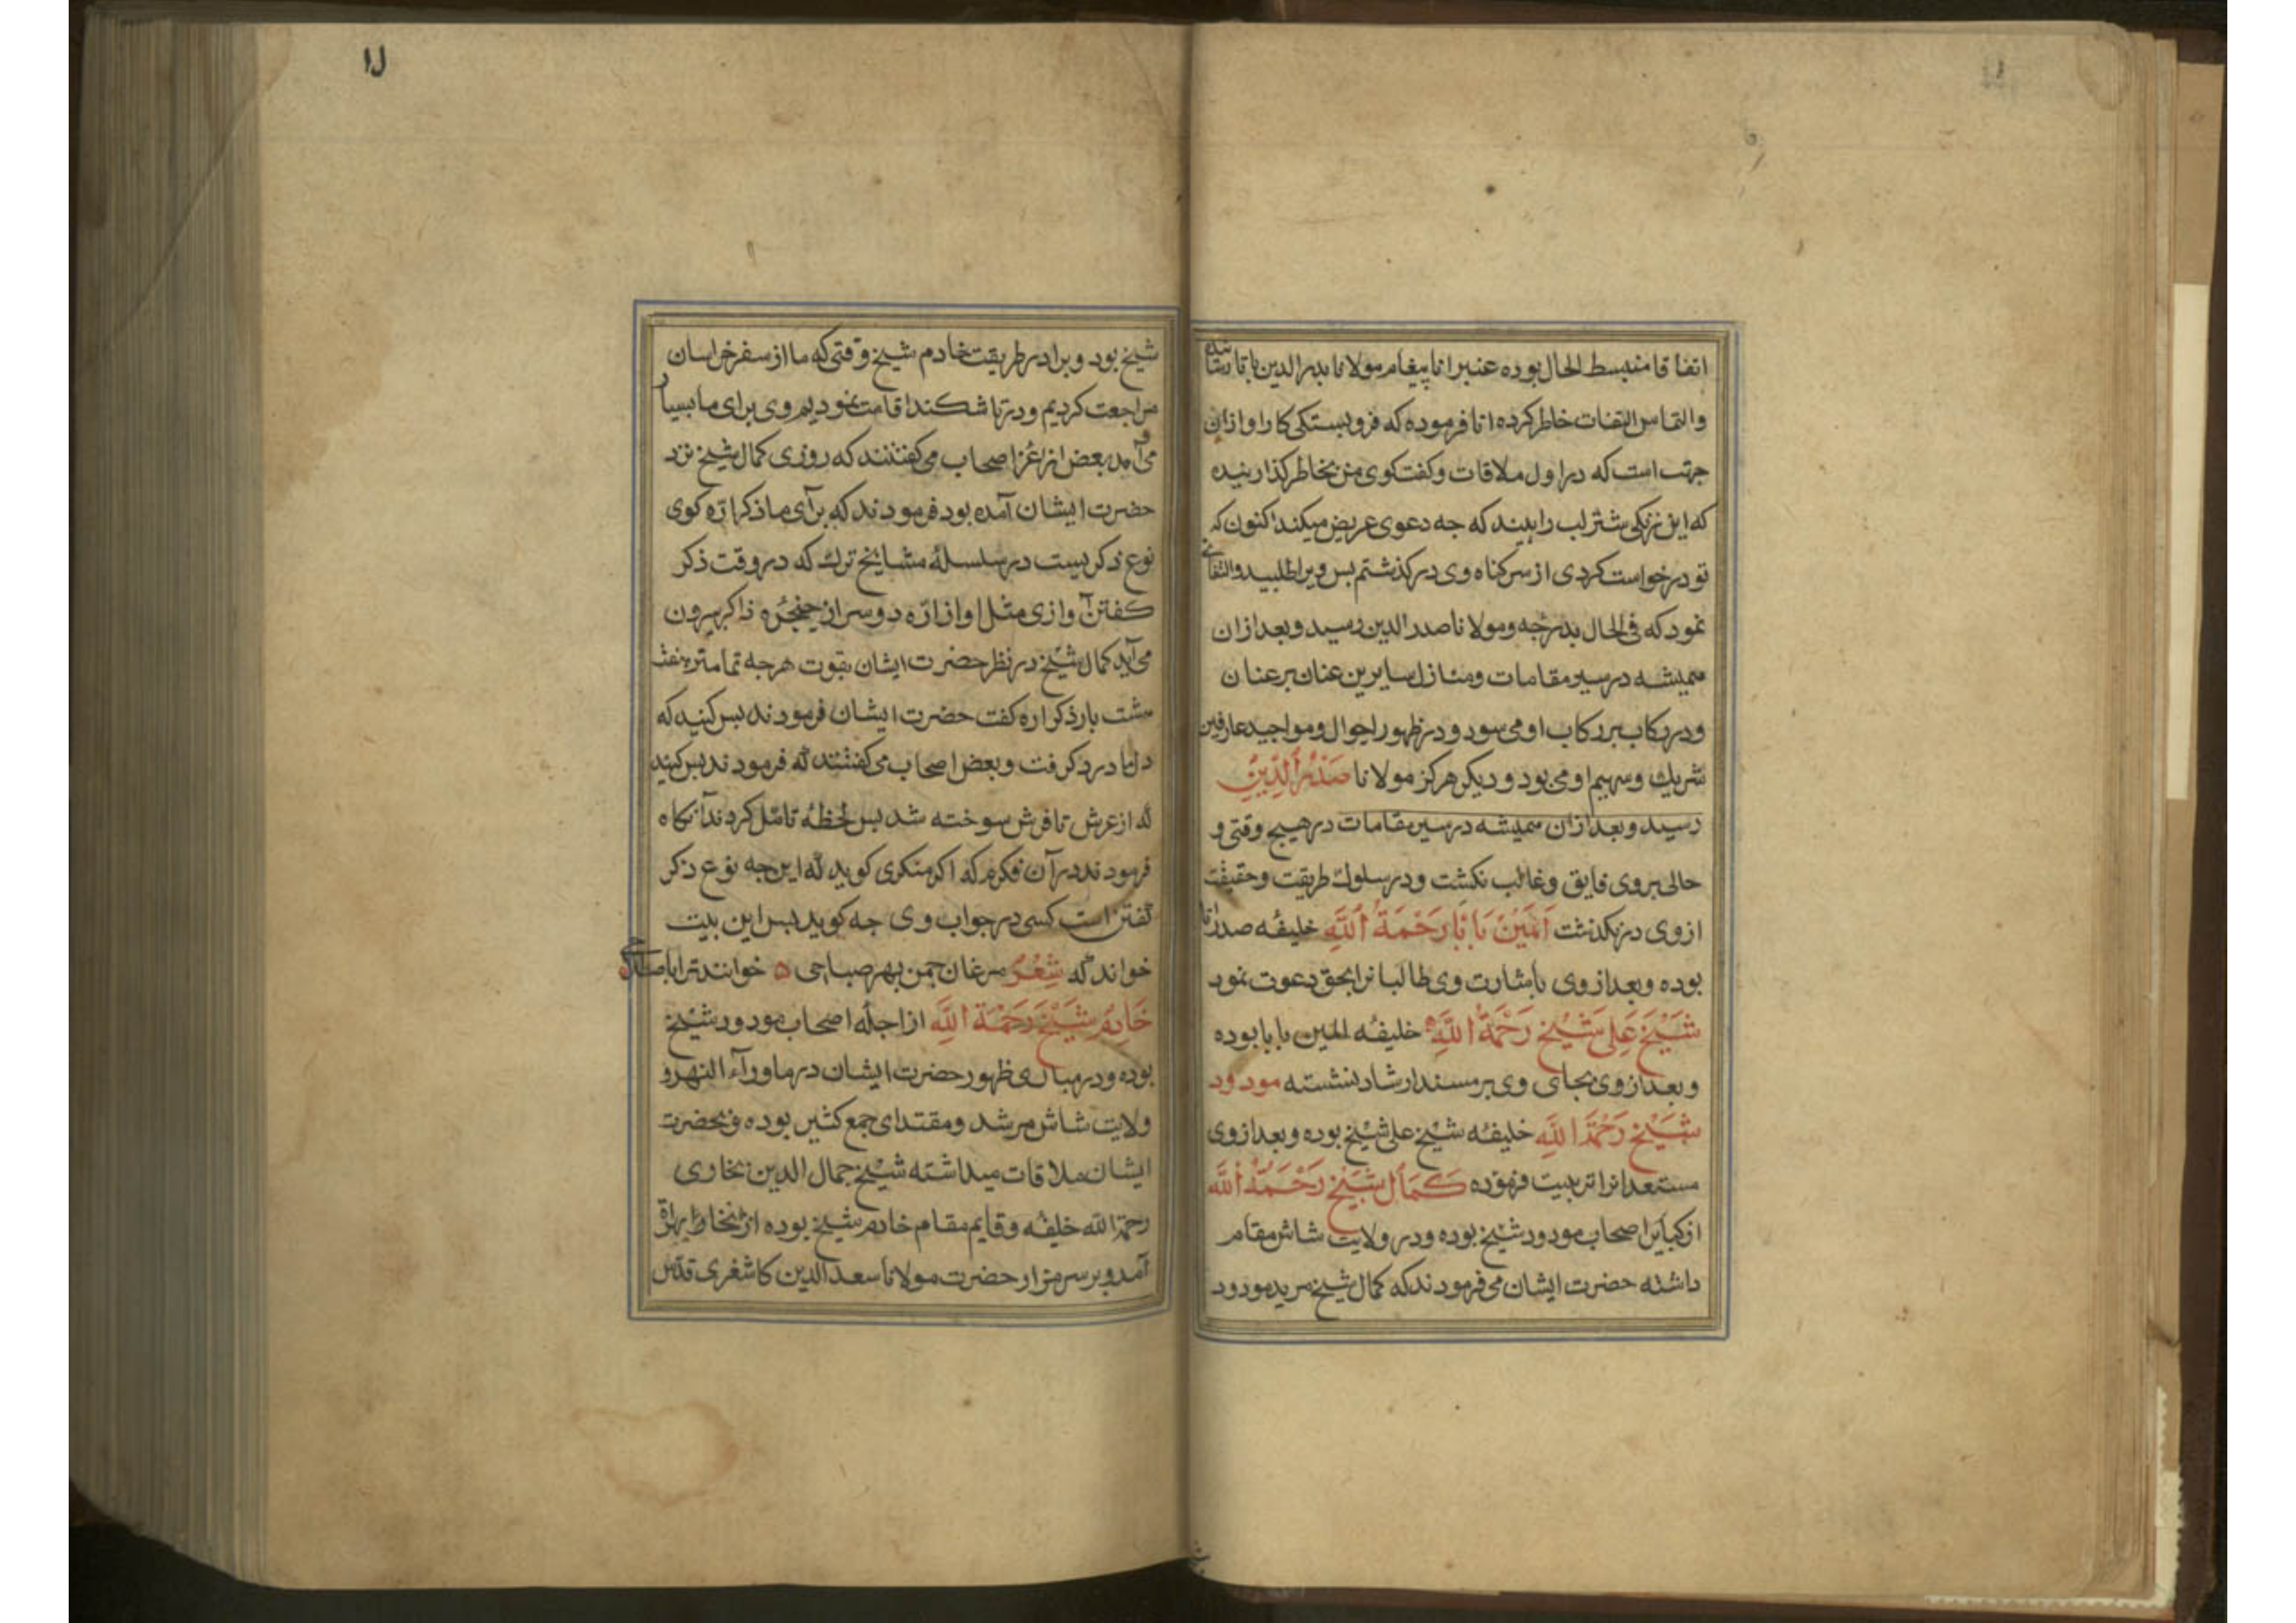 اتفاقا منبسط الحال بوده عنبر انا پیغام مولانا بدر الدین باتا رسانیده
والتماس التفات خاطر کرده اتا فرموده که فروبستکی کار او ازان
جهت است که در اول ملاقات وکفتکوی من بخاطر کذارنیده
که این ترکی شتر لب را ببیند که جه دعوی عریض میکند اکنون که
تو درخواست کردی از سر کناه وی در کذشتم بس ویرا طلبید والتفاتی
نمود که فی الحال بدرجه ومولانا صدر الدین رسید وبعد ازان
همیشه در سیر مقامات ومنازل سایرین عنان بر عنان
ودر رکاب بر رکاب او می سود ودر ظهور احوال ومواجید عارفین
شریك وسهیم او می بود ودیکر هرکز مولانا صَدْرُ الدِّینِ
رسید وبعد ازان همیشه در سیر مقامات در هیچ وقتی و
حالی بروی فایق وغالب نکشت ودر سلوك طریقت وحقیقت
ازوی در نکذشت اَیْمَنْ بَابَا رَحْمَةُ اللَّهِ خلیفهٔ صدر اتا
بوده وبعد از وی باشارت وی طالبانرا بحق دعوت نمود
شَیْخ عَلی شَیْخ رَحْمَةُ اللَّهِ خلیفهٔ ایمن بابا بوده
وبعد از وی بجای وی بر مسند ارشاد نشسته مودود
شَیْخ رَحْمَةُ اللَّهِ خلیفهٔ شیخ علی شیخ بوده وبعد از وی
مستعدانرا تربیت فرموده کَمَال شَیْخ رَحْمَةُ اللَّه
از کبایر اصحاب مودود شیخ بوده ودر ولایت شاش مقام
داشته حضرت ایشان می فرمودند که کمال شیخ مرید مودود
۱۱
شیخ بود وبرادر طریقت خادم شیخ وقتی که ما از سفر خراسان
مراجعت کردیم ودر تاشکند اقامت نمودیم وی برای ما بسیار
می آمد و بعض از اعزهٔ اصحاب می کفتند که روزی کمال شیخ نزد
حضرت ایشان آمده بود فرمودند که برای ما ذکر ارّه کوی
نوع ذکریست در سلسلهٔ مشایخ ترك که در وقت ذکر
کفتن آوازی مثل اواز ارّه دوسر از حنجرهٔ ذاکر بیرون
می آید کمال شیخ در نظر حضرت ایشان بقوت هرجه تمامتر هفت
هشت بار ذکر ارّه کفت حضرت ایشان فرمودند بس کنید که
دل ما درد کرفت وبعض اصحاب می کفتند که فرمودند بس کنید
که از عرش تا فرش سوخته شد بس لحظهٔ تامّل کردند آنکاه
فرمودند در آن فکرم که اکر منکری کوید که این جه نوع ذکر
کفتن است کسی در جواب وی جه کوید بس این بیت
خواند که شِعْر مرغان جمن بهر صباحی ۵ خوانند ترا باصطلاحی
خَادِم شَیْخ رَحْمَةُ اللَّهِ از اجلهٔ اصحاب مودود شیخ
بوده ودر مبادی ظهور حضرت ایشان در ماوراء النهر و
ولایت شاش مرشد ومقتدای جمع کثیر بوده وبحضرت
ایشان ملاقات میداشته شیخ جمال الدین بخاری
رحمة الله خلیفه وقایم مقام خادم شیخ بوده از بخارا بهراة
آمد وبر سر مزار حضرت مولانا سعد الدین کاشغری قدّس